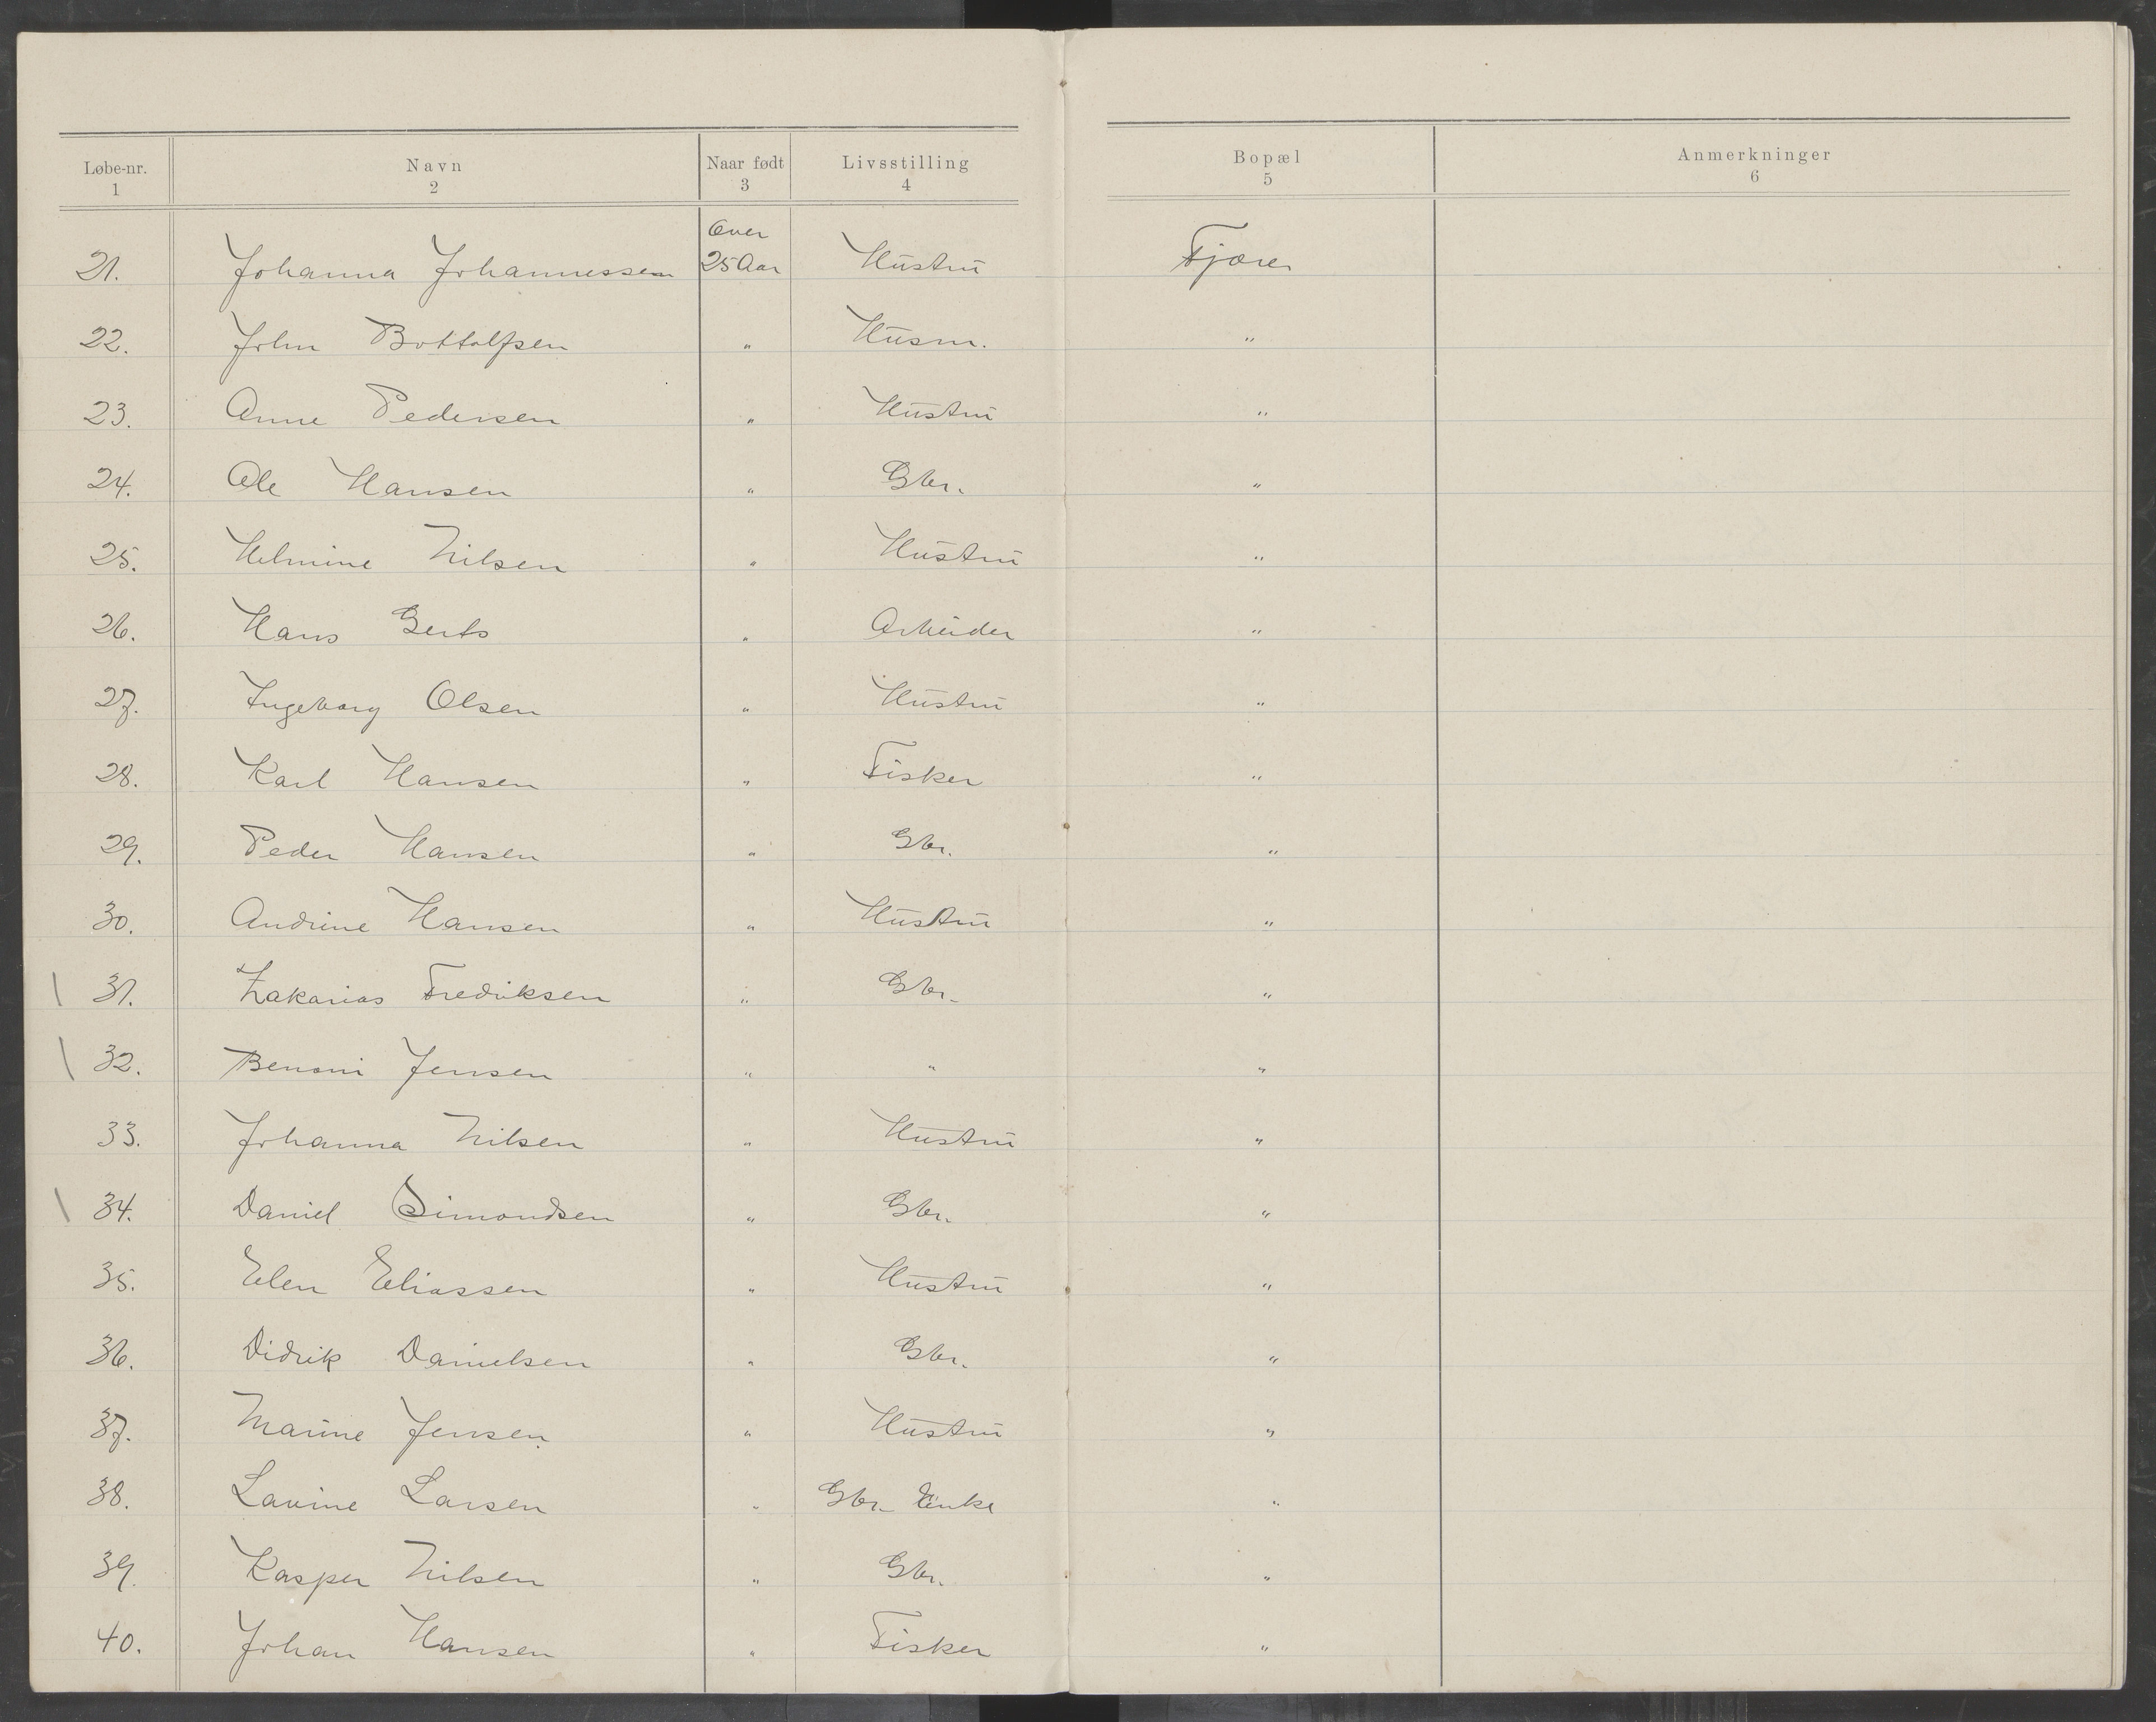 Løbe-nr. Navn Naar født Livsstilling Bopæl Anmerkninger
1 2 3 4 5 6
Over
21. Johanna Johannessen 25 Aar Hustru Fjære
22. John Bottolfsen " Husm. "
23. Anne Pedersen " Hustru "
24. Ole Hansen " Gbr. "
25. Helmine Nilsen " Hustru "
26. Hans Gerts " Arbeider "
27. Ingeborg Olsen " Hustru "
28. Karl Hansen " Fisker "
29. Peder Hansen " Gbr. "
30. Andrine Hansen " Hustru "
\ 31. Zakarias Fredriksen " Gbr. "
\ 32. Benoni Jensen " " "
33. Johanna Nilsen " Hustru "
\ 34. Daniel Simondsen " Gbr. "
35. Elen Eliassen " Hustru "
36. Didrik Danielsen " Gbr. "
37. Marine Jensen " Hustru "
38. Lavine Larsen " Gbr. Enke "
39. Kasper Nilsen " Gbr. "
40. Johan Hansen " Fisker "